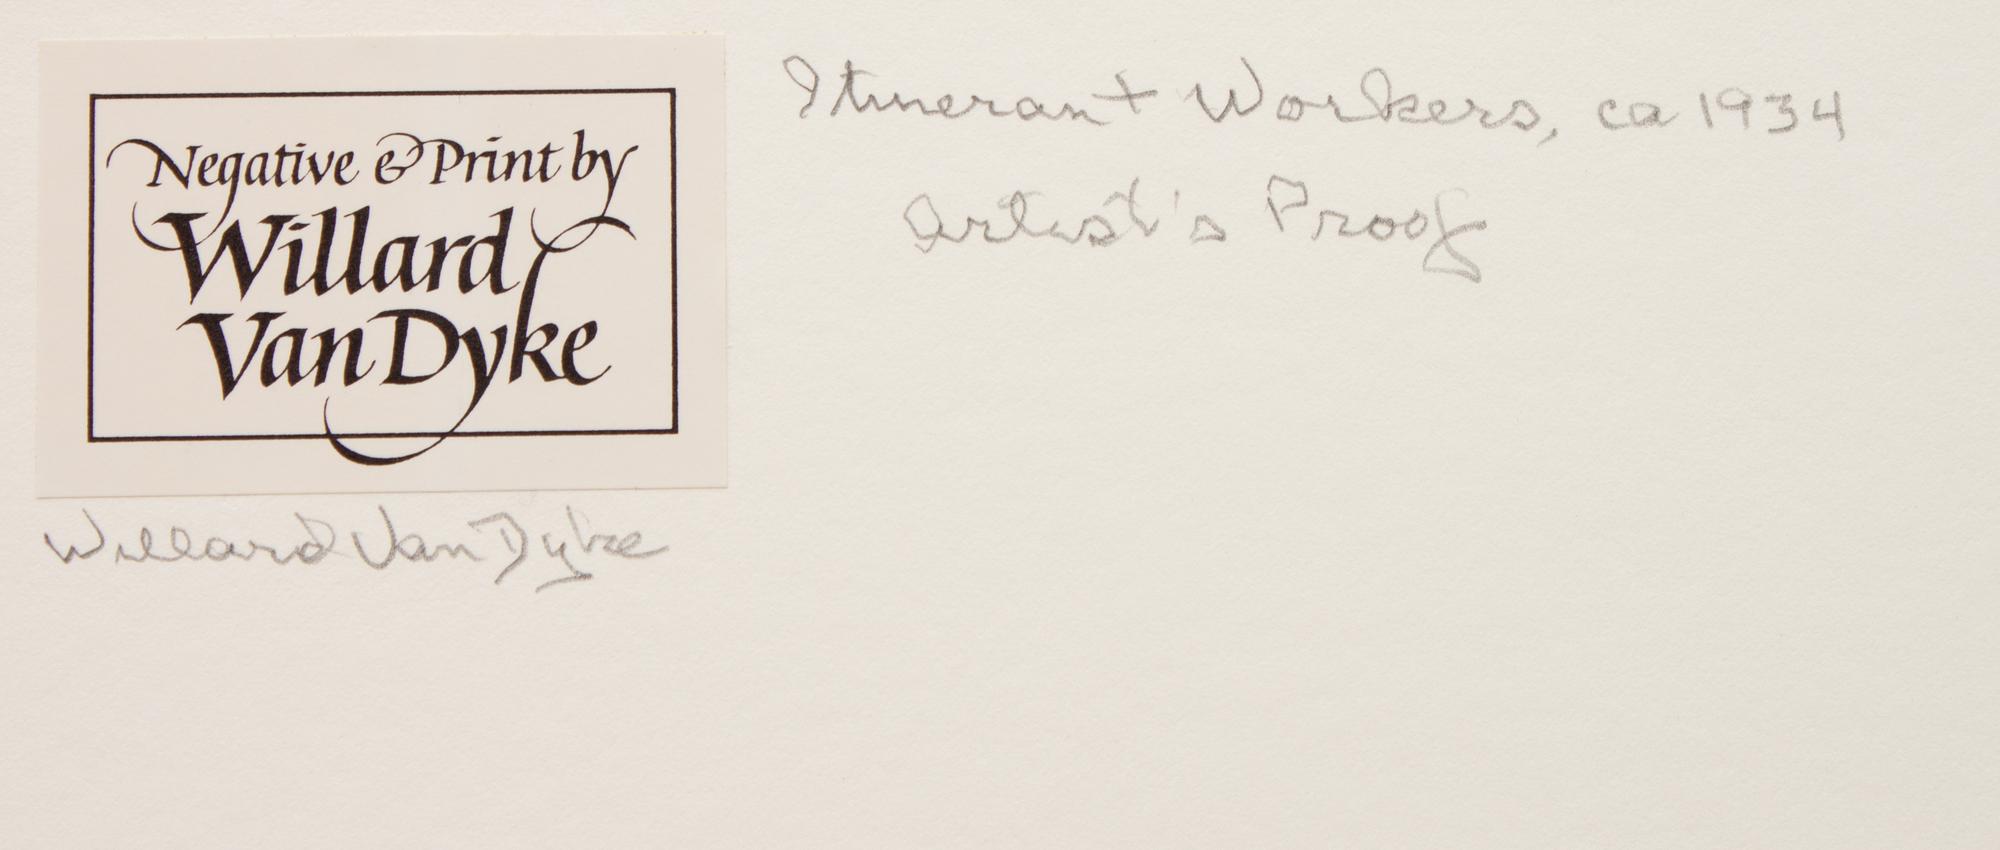 Negative & Print by
Willard
Van Dyke
Willard Van Dyke
Itinerant Workers, ca 1934
Artist's Proof